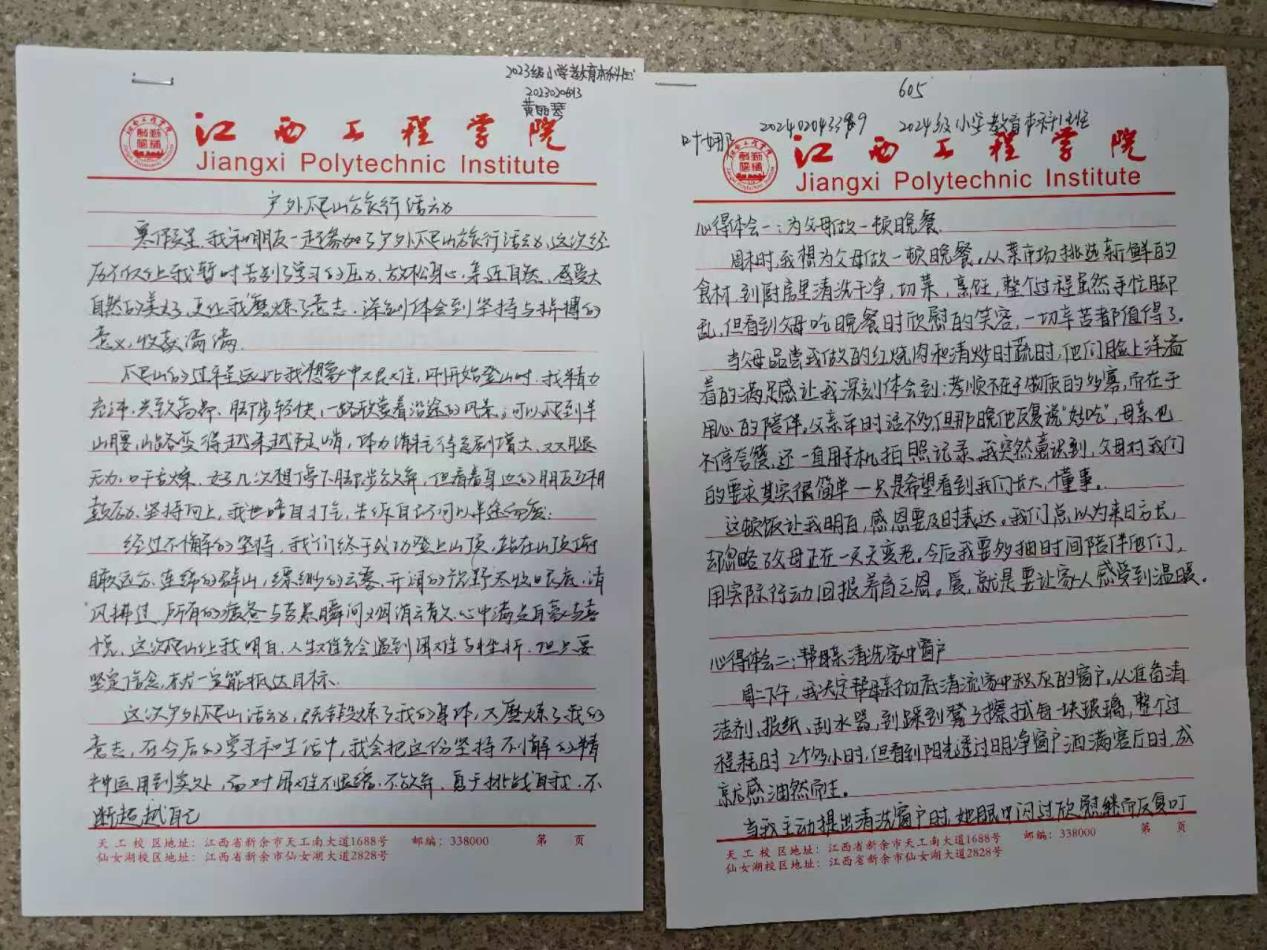 2023级小学教育本科
黄丽琴
江西工程学院
Jiangxi Polytechnic Institute
户外爬山旅行活动
寒假里,我和朋友一起参加了户外爬山旅行活动,这次经
历不仅让我暂时告别了学习的压力、放松身心,亲近自然,感受大
自然的美好,更让我磨炼了意志,深刻体会到坚持与拼搏的
意义,收获满满。
爬山的过程远比我想象中艰难,刚开始登山时,我精力
充沛,兴致高昂,脚步轻快,一路欣赏着沿途的风景。可以爬到半
山腰,山路变得越来越陡峭,体力消耗得急剧增大,双腿
无力,口干舌燥,好几次想停下脚步放弃,但看着身边的朋友互相
鼓励、坚持向上,我也暗自打气,告诉自己不可以半途而废。
经过不懈的坚持,我们终于成功登上山顶,站在山顶俯
瞰远方,连绵的群山,缥缈的云雾,开阔的视野尽收眼底,清
风拂过,所有的疲惫与苦累瞬间烟消云散,心中满是自豪与喜
悦,这次爬山让我明白,人生难免会遇到困难与挫折,但只要
坚定信念,就一定能抵达目标。
这次户外爬山活动,既锻炼了我的身体,又磨炼了我的
意志,在今后的学习和生活中,我会把这份坚持不懈的精
神运用到实处,面对困难不退缩,不放弃,勇于挑战自我,不
断超越自己
天工校区地址:江西省新余市天工南大道1688号 邮编:338000 第 页
仙女湖校区地址:江西省新余市仙女湖大道2828号
605
2024级小学教育本科
江西工程学院
Jiangxi Polytechnic Institute
心得体会一:为父母做一顿晚餐
周末时,我想为父母做一顿晚餐,从菜市场挑选新鲜的
食材,到厨房里清洗干净,切菜,烹饪,整个过程虽然手忙脚
乱,但看到父母吃晚餐时欣慰的笑容,一切辛苦都值得了。
当父母品尝我做的红烧肉和清炒时蔬时,他们脸上洋溢
着的满足感让我深刻体会到:孝顺不在于物质的多寡,而在于
用心的陪伴。父亲平时话不多但那晚他反复说“好吃”,母亲也
不停夸赞,还一直用手机拍照记录,我突然意识到,父母对我们
的要求其实很简单一只是希望看到我们长大,懂事。
这顿饭让我明白,感恩要及时表达。我们总以为来日方长,
却忽略了父母正在一天天变老。今后我要多抽时间陪伴他们,
用实际行动回报养育之恩。爱,就是要让家人感受到温暖。
心得体会二:帮母亲清洗家中窗户
周二下午,我决定帮母亲彻底清洗家中积灰的窗户。从准备清
洁剂、报纸、刮水器,到踩到凳子擦拭每一块玻璃,整个过
程耗时2个多小时,但看到阳光透过明净窗户洒满客厅时,成
就感油然而生。
当我主动提出清洗窗户时,她眼中闪过欣慰继而反复叮
天工校区地址:江西省新余市天工南大道1688号 邮编:338000 第 页
仙女湖校区地址:江西省新余市仙女湖大道2828号